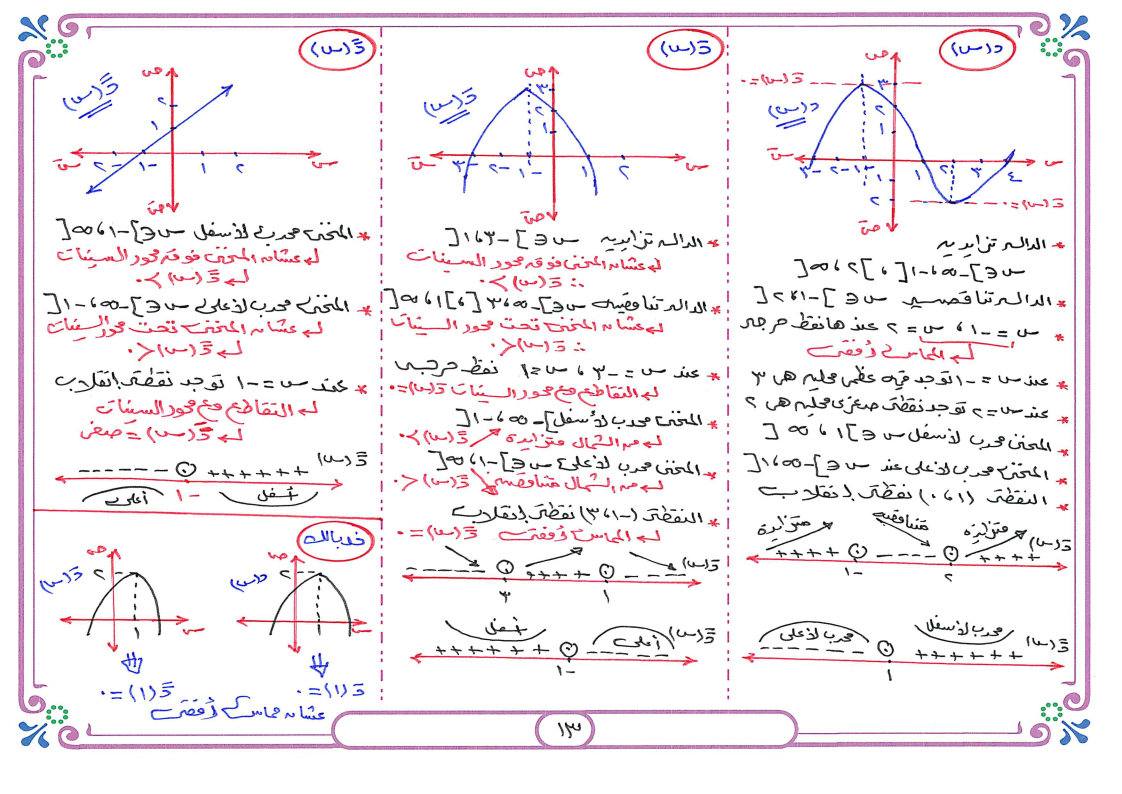 د(س)
ص
د(س)
٣
٢
١
س
سَ
-٣
-١
١
٢
٣
٤
-١
-٢
صَ
دَ(س) = ٠
دَ(س) = ٠
* الدالة تزايدية
س ∈ ]-∞، -١[ ، ]٢، ∞[
* الدالة تناقصية س ∈ ]-١، ٢[
* س = -١، س = ٢ عندها نقط حرجة
↳ المماس أفقى
* عند س = -١ توجد قيمة عظمى محلية هى ٣
* عند س = ٢ توجد نقطة صغرى محلية هى ٢
* المنحنى محدب لأسفل س ∈ ]١، ∞[
* المنحنى محدب لأعلى عند س ∈ ]-∞، ١[
* النقطة (١، ٠) نقطة إنقلاب
متزايدة
متناقصة
متزايدة
دَ(س)
++++ ---- ++++
-١
٢
محدب لأعلى
محدب لأسفل
دً(س)
١
دَ(س)
ص
دَ(س)
٣
٢
١
س
سَ
-٣
-٢
-١
١
٢
صَ
* الدالة تزايدية س ∈ ]-٣، ١[
↳ عشان المنحنى فوق محور السينات
∴ دَ(س) > ٠
* الدالة تناقصية ]-∞، ٣[ ، ]١، ∞[
↳ عشان المنحنى تحت محور السينات
∴ دَ(س) < ٠
* عند س = -٣، س = ١ نقط حرجة
↳ التقاطع مع محور السينات دَ(س) = ٠
* المنحنى محدب لأسفل ]-∞، -١[
↳ من الشمال متزايدة دً(س) > ٠
* المنحنى محدب لأعلى س ∈ ]-١، ∞[
↳ من الشمال متناقصة دً(س) < ٠
* النقطة (-١، ٣) نقطة إنقلاب
↳ المماس أفقى دً(س) = ٠
دَ(س)
---- ++++ ----
٣
١
أسفل
أعلى
دً(س)
++++++ ----
-١
دً(س)
ص
دً(س)
٢
١
س
سَ
-٢
-١
١
٢
صَ
* المنحنى محدب لأسفل س ∈ ]-١، ∞[
↳ عشان المنحنى فوق محور السينات
↳ دً(س) > ٠
* المنحنى محدب لأعلى س ∈ ]-∞، -١[
↳ عشان المنحنى تحت محور السينات
↳ دً(س) < ٠
* عند س = -١ توجد نقطة إنقلاب
↳ التقاطع مع محور السينات
↳ دً(س) = صفر
دً(س)
------ ++++++
-١
أعلى
أسفل
خد بالك
ص
د(س)
٢
١
س
دَ(١) = ٠
ص
دَ(س)
٢
١
س
دً(١) = ٠
عشان مماس أفقى
١٣